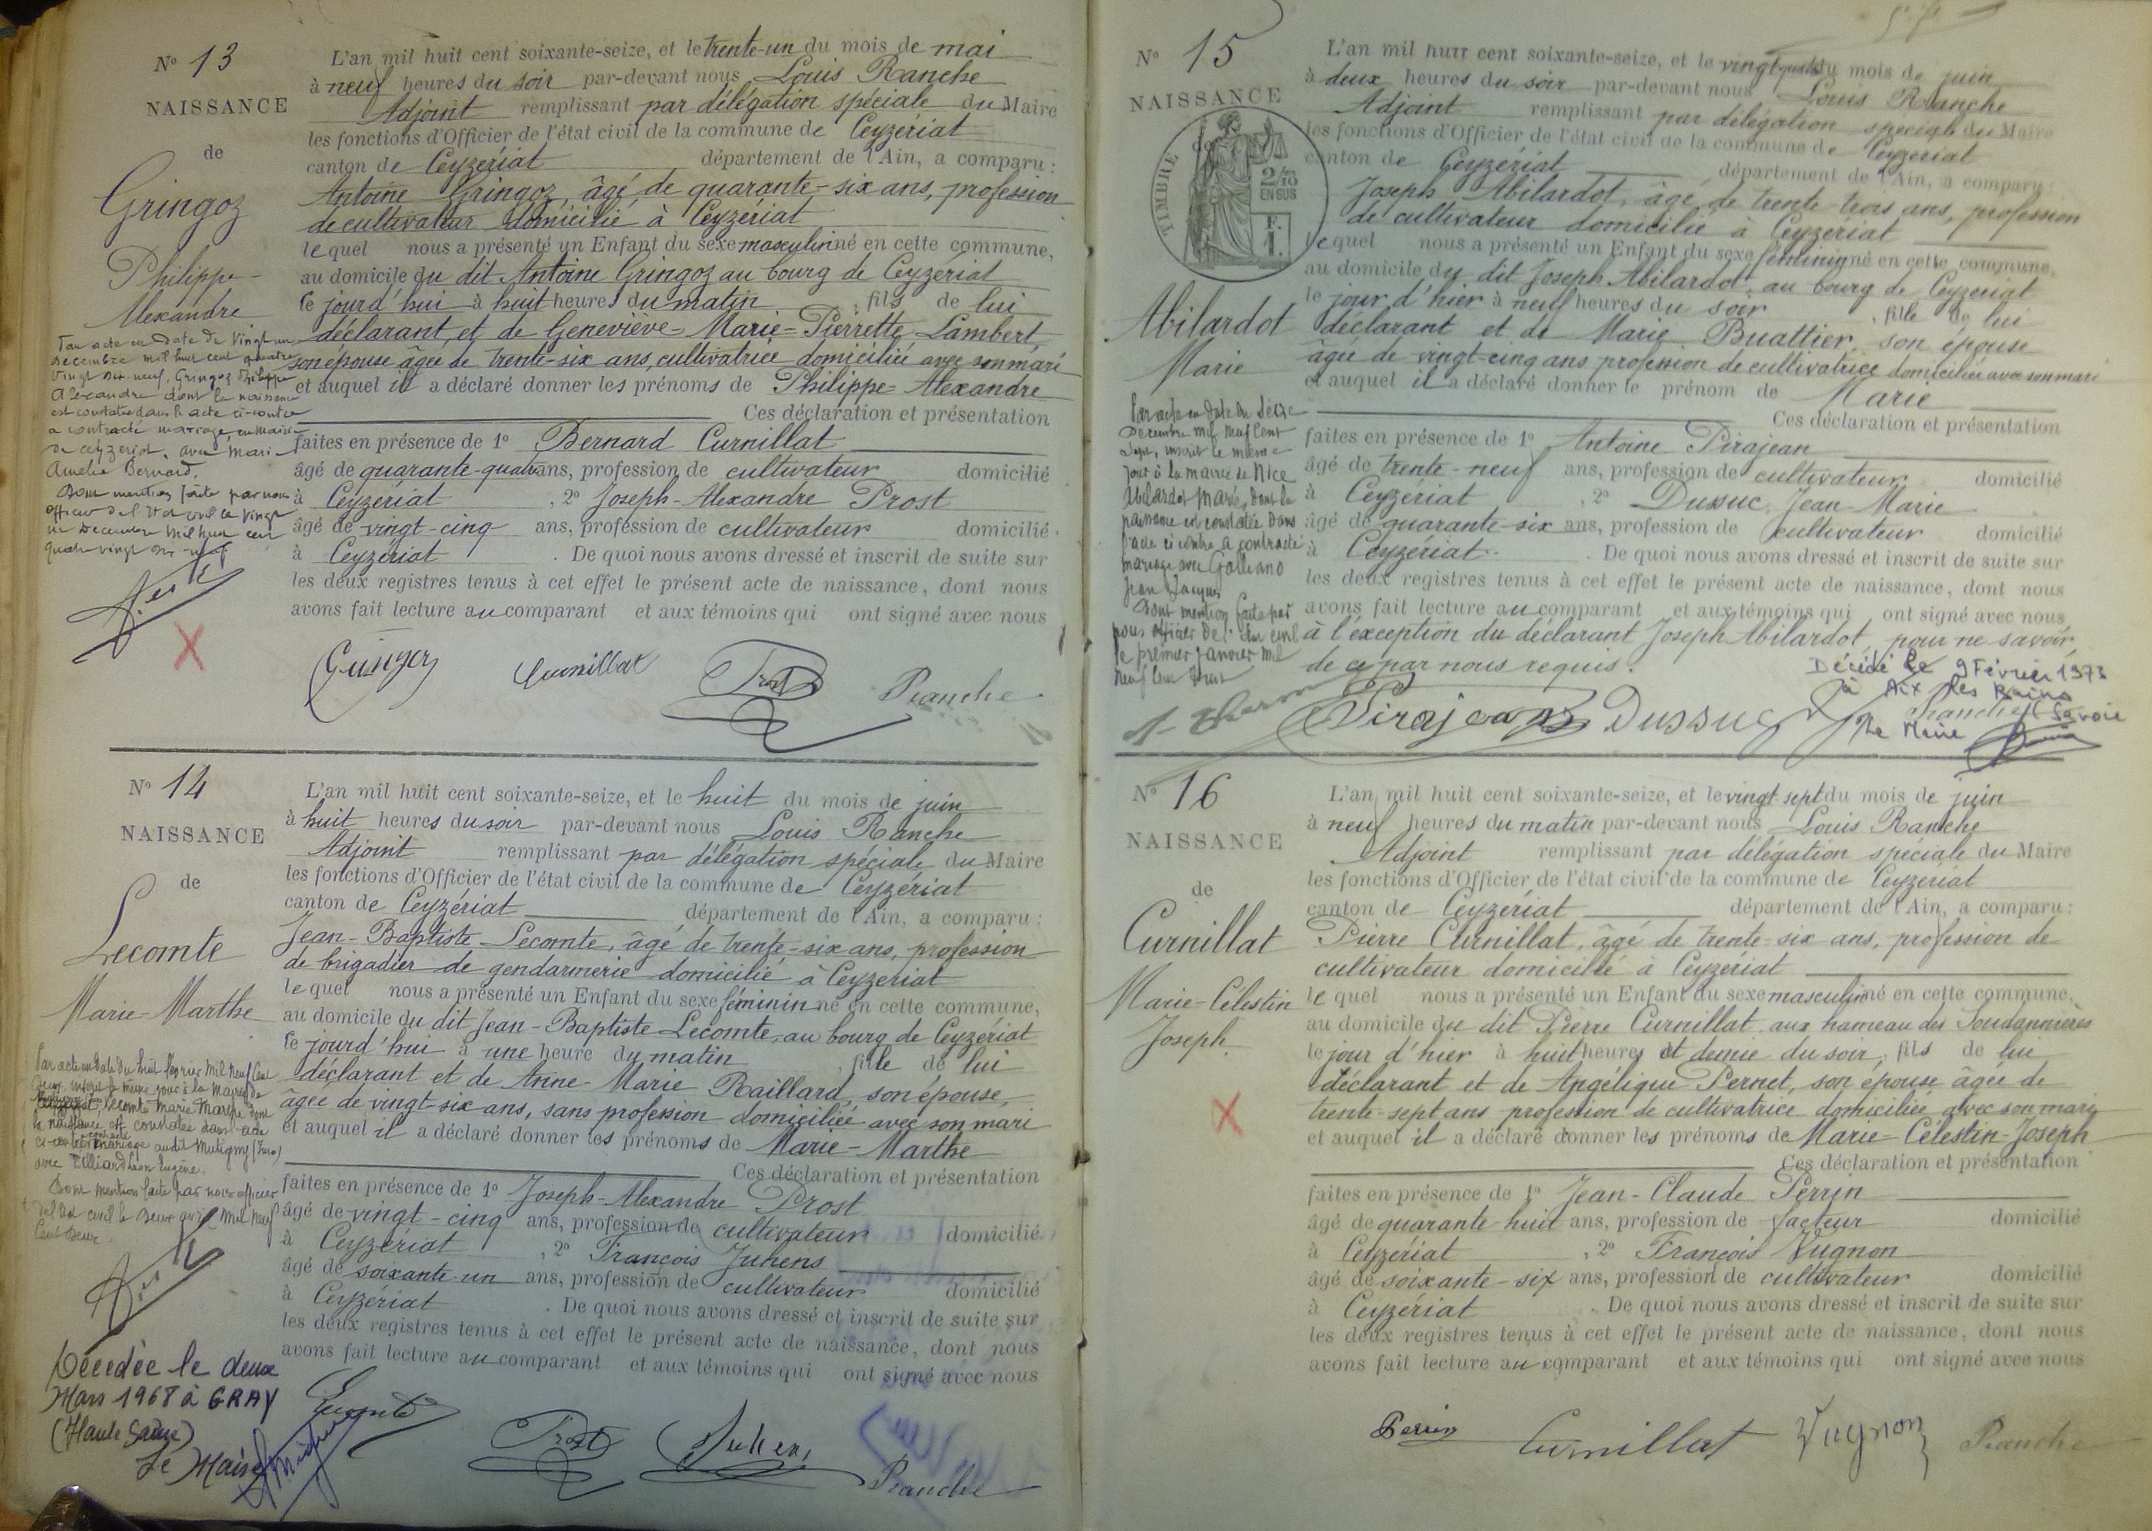 N° 13
NAISSANCE
de
Gringoz
Philippe-
Alexandre
Par acte en date du vingt un
Décembre mil huit cent quatre
vingt dix-neuf, Gringoz Philippe
Alexandre dont la naissance
est constatée dans l'acte ci-contre
a contracté mariage, en mairie
de Ceyzériat, avec Marie
Amélie Bernard.
Dont mention faite par nous
officier de l'état civil le vingt
un Décembre mil huit cent
quatre vingt dix-neuf
L'an mil huit cent soixante-seize, et le trente-un du mois de mai
à neuf heures du soir par-devant nous Louis Ranche
Adjoint remplissant par délégation spéciale du Maire
les fonctions d'Officier de l'état civil de la commune de Ceyzériat
canton de Ceyzériat département de l'Ain, a comparu :
Antoine Gringoz, âgé de quarante-six ans, profession
de cultivateur domicilié à Ceyzériat
le quel nous a présenté un Enfant du sexe masculin né en cette commune,
au domicile du dit Antoine Gringoz au bourg de Ceyzériat
le jourd'hui à huit heures du matin, fils de lui
déclarant et de Geneviève-Marie-Pierrette Lambert,
son épouse âgée de trente-six ans, cultivatrice domiciliée avec son mari
et auquel il a déclaré donner les prénoms de Philippe-Alexandre
Ces déclaration et présentation
faites en présence de 1° Bernard Curnillat
âgé de quarante-quatre ans, profession de cultivateur domicilié
à Ceyzériat, 2° Joseph-Alexandre Prost
âgé de vingt-cinq ans, profession de cultivateur domicilié
à Ceyzériat. De quoi nous avons dressé et inscrit de suite sur
les deux registres tenus à cet effet le présent acte de naissance, dont nous
avons fait lecture au comparant et aux témoins qui ont signé avec nous
Gringoz Curnillat Prost Ranche
N° 14
NAISSANCE
de
Lecomte
Marie-Marthe
Par acte en date du huit février mil neuf cent
deux, inscrit le même jour à la mairie de
Lecomte Marie Marthe dont
la naissance est constatée dans l'acte
ci-contre a contracté mariage audit Mutigney (Jura)
avec Billiard Léon Eugène.
Dont mention faite par nous officier
de l'état civil le deux avril mil neuf
cent deux.
Décédée le deux
Mars 1968 à GRAY
(Haute Saône)
Le Maire
L'an mil huit cent soixante-seize, et le huit du mois de juin
à huit heures du soir par-devant nous Louis Ranche
Adjoint remplissant par délégation spéciale du Maire
les fonctions d'Officier de l'état civil de la commune de Ceyzériat
canton de Ceyzériat département de l'Ain, a comparu :
Jean-Baptiste Lecomte, âgé de trente-six ans, profession
de brigadier de gendarmerie domicilié à Ceyzériat
le quel nous a présenté un Enfant du sexe féminin né en cette commune,
au domicile du dit Jean-Baptiste Lecomte, au bourg de Ceyzériat
le jourd'hui à une heure du matin, fille de lui
déclarant et de Anne-Marie Raillard, son épouse,
âgée de vingt-six ans, sans profession domiciliée avec son mari
et auquel il a déclaré donner les prénoms de Marie-Marthe
Ces déclaration et présentation
faites en présence de 1° Joseph-Alexandre Prost
âgé de vingt-cinq ans, profession de cultivateur domicilié
à Ceyzériat, 2° François Juhens
âgé de soixante-un ans, profession de cultivateur domicilié
à Ceyzériat. De quoi nous avons dressé et inscrit de suite sur
les deux registres tenus à cet effet le présent acte de naissance, dont nous
avons fait lecture au comparant et aux témoins qui ont signé avec nous
Lecomte Prost Juhens Ranche
N° 15
NAISSANCE
de
TIMBRE
2/10
EN SUS
F.
1.
Abilardot
Marie
Par acte en date du seize
Décembre mil neuf cent
sept, inscrit le même
jour à la mairie de Nice
Abilardot Marie, dont la
naissance est constatée dans
l'acte ci contre a contracté
mariage avec Galliano
Jean Jacques
Dont mention faite par
nous officier de l'état civil
le premier janvier mil
neuf cent huit
L'an mil huit cent soixante-seize, et le vingt quatre du mois de juin
à deux heures du soir par-devant nous Louis Ranche
Adjoint remplissant par délégation spéciale du Maire
les fonctions d'Officier de l'état civil de la commune de Ceyzériat
canton de Ceyzériat département de l'Ain, a comparu :
Joseph Abilardot, âgé de trente-trois ans, profession
de cultivateur domicilié à Ceyzériat
le quel nous a présenté un Enfant du sexe féminin né en cette commune,
au domicile du dit Joseph Abilardot, au bourg de Ceyzériat
le jour d'hier à neuf heures du soir, fille de lui
déclarant et de Marie Buattier, son épouse
âgée de vingt-cinq ans profession de cultivatrice domiciliée avec son mari
et auquel il a déclaré donner le prénom de Marie
Ces déclaration et présentation
faites en présence de 1° Antoine Pirajean
âgé de trente-neuf ans, profession de cultivateur domicilié
à Ceyzériat, 2° Dussuc, Jean-Marie
âgé de quarante-six ans, profession de cultivateur domicilié
à Ceyzériat. De quoi nous avons dressé et inscrit de suite sur
les deux registres tenus à cet effet le présent acte de naissance, dont nous
avons fait lecture au comparant et aux témoins qui ont signé avec nous
à l'exception du déclarant Joseph Abilardot, pour ne savoir,
de ce par nous requis.
Décédé le 9 Février 1973
à Aix les Bains
Savoie
Le Maire
Pirajean Dussuc Ranche
N° 16
NAISSANCE
de
Curnillat
Marie-Célestin
Joseph
L'an mil huit cent soixante-seize, et le vingt sept du mois de juin
à neuf heures du matin par-devant nous Louis Ranche
Adjoint remplissant par délégation spéciale du Maire
les fonctions d'Officier de l'état civil de la commune de Ceyzériat
canton de Ceyzériat département de l'Ain, a comparu :
Pierre Curnillat, âgé de trente-six ans, profession de
cultivateur domicilié à Ceyzériat
le quel nous a présenté un Enfant du sexe masculin né en cette commune,
au domicile du dit Pierre Curnillat aux hameau des Soudannières
le jour d'hier à huit heures et demie du soir, fils de lui
déclarant et de Angélique Pernet, son épouse âgée de
trente-sept ans profession de cultivatrice domiciliée avec son mari
et auquel il a déclaré donner les prénoms de Marie-Célestin-Joseph
Ces déclaration et présentation
faites en présence de 1° Jean-Claude Perrin
âgé de quarante huit ans, profession de facteur domicilié
à Ceyzériat, 2° François Vugnon
âgé de soixante-six ans, profession de cultivateur domicilié
à Ceyzériat. De quoi nous avons dressé et inscrit de suite sur
les deux registres tenus à cet effet le présent acte de naissance, dont nous
avons fait lecture au comparant et aux témoins qui ont signé avec nous
Perrin Curnillat Vugnon Ranche